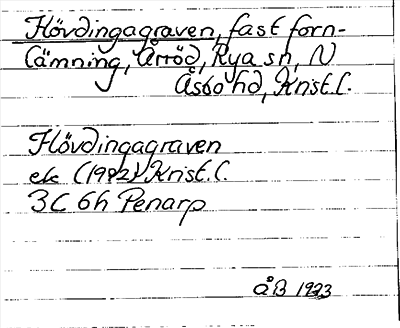 Hövdingagraven, fast forn-
lämning, Årröd, Rya sn, N
Åsbo hd, Krist. l.
Hövdingagraven
ek (1982) Krist. l.
3C 6h Penarp
åB 1923